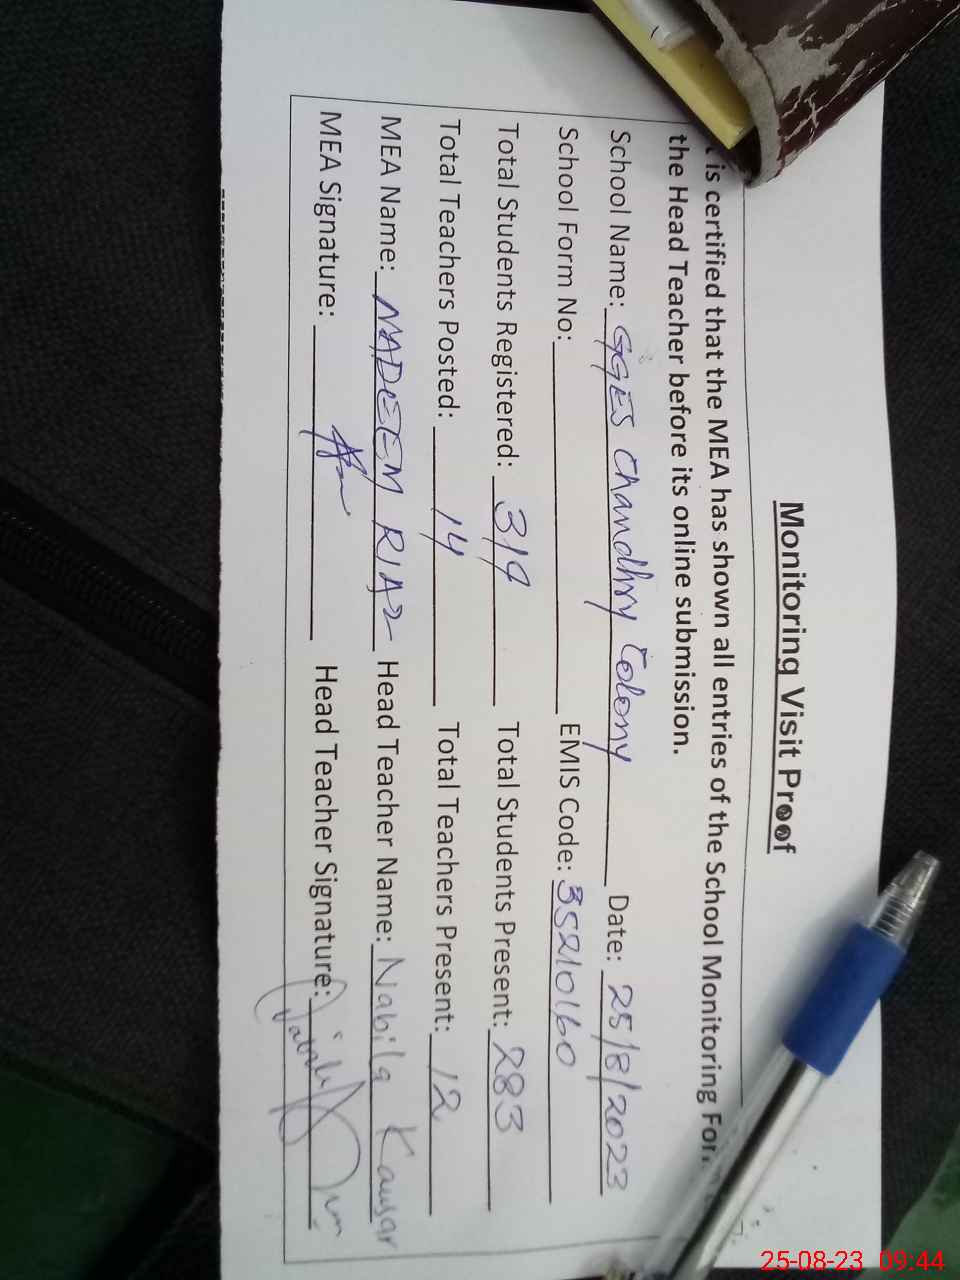 Monitoring Visit Proof
is certified that the MEA has shown all entries of the School Monitoring Form
the Head Teacher before its online submission.
School Name: GGES Chandhry Colony Date: 25/8/2023
School Form No: EMIS Code: 35210160
Total Students Registered: 319 Total Students Present: 283
Total Teachers Posted: 14 Total Teachers Present: 12
MEA Name: NADEEM RIAZ Head Teacher Name: Nabila Kausar
MEA Signature: Head Teacher Signature:
25-08-23 09:44